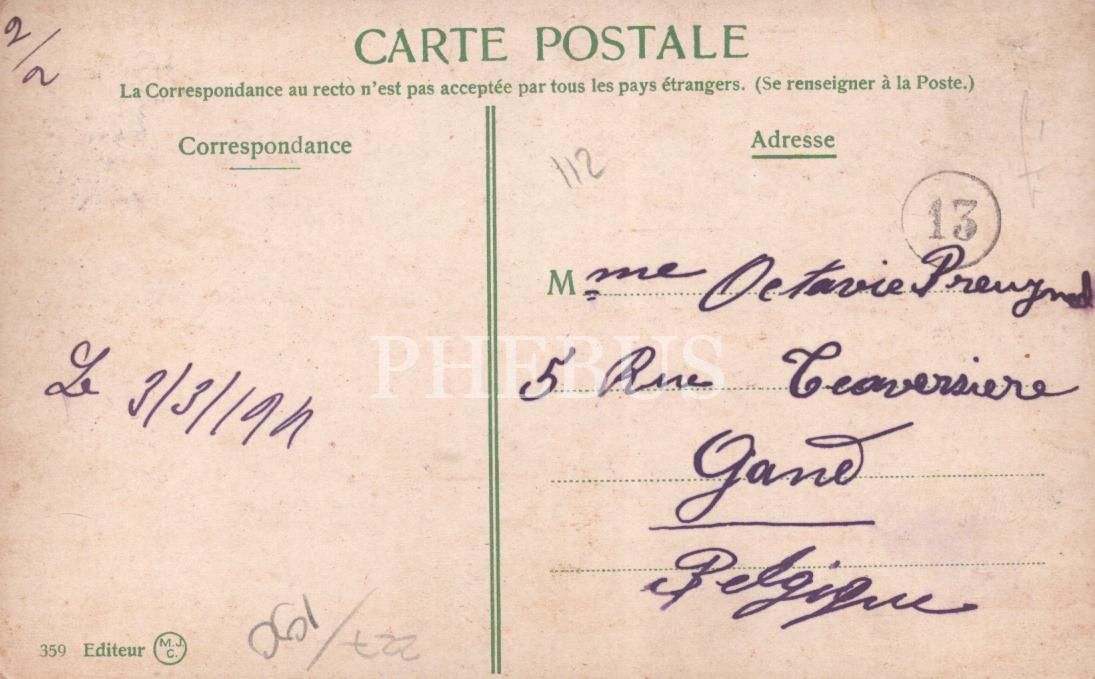 2/2
CARTE POSTALE
La Correspondance au recto n'est pas acceptée par tous les pays étrangers. (Se renseigner à la Poste.)
Correspondance
Adresse
112
13
Mme Octavie
5 Rue Traversiere
Gand
Belgique
PHEBUS
Le 3/3/1911
359 Editeur M.J.C.